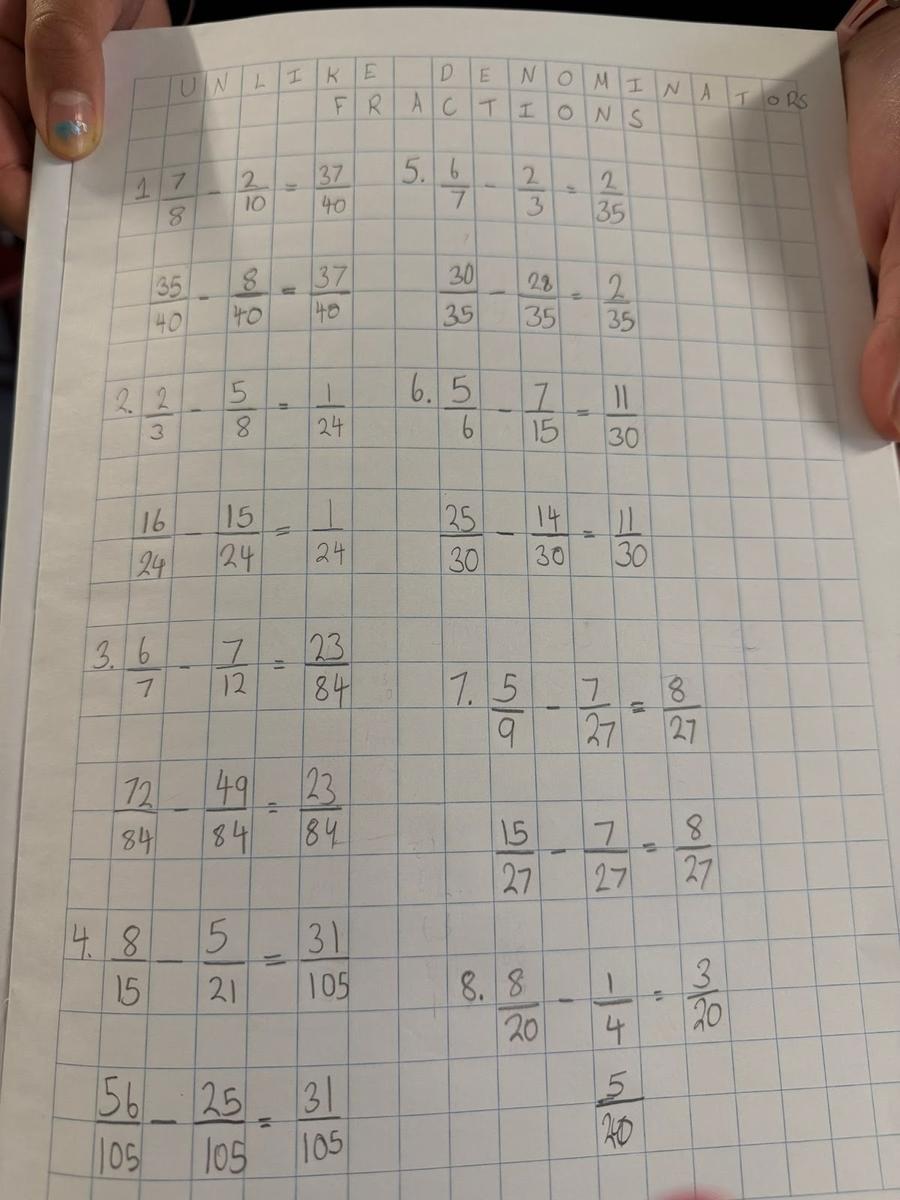 UNLIKE DENOMINATORS
FRACTIONS
1 7/8 - 2/10 = 37/40
35/40 - 8/40 = 37/40
2. 2/3 - 5/8 = 1/24
16/24 - 15/24 = 1/24
3. 6/7 - 7/12 = 23/84
72/84 - 49/84 = 23/84
4. 8/15 - 5/21 = 31/105
56/105 - 25/105 = 31/105
5. 6/7 - 2/3 = 2/35
30/35 - 28/35 = 2/35
6. 5/6 - 7/15 = 11/30
25/30 - 14/30 = 11/30
7. 5/9 - 7/27 = 8/27
15/27 - 7/27 = 8/27
8. 8/20 - 1/4 = 3/20
5/20